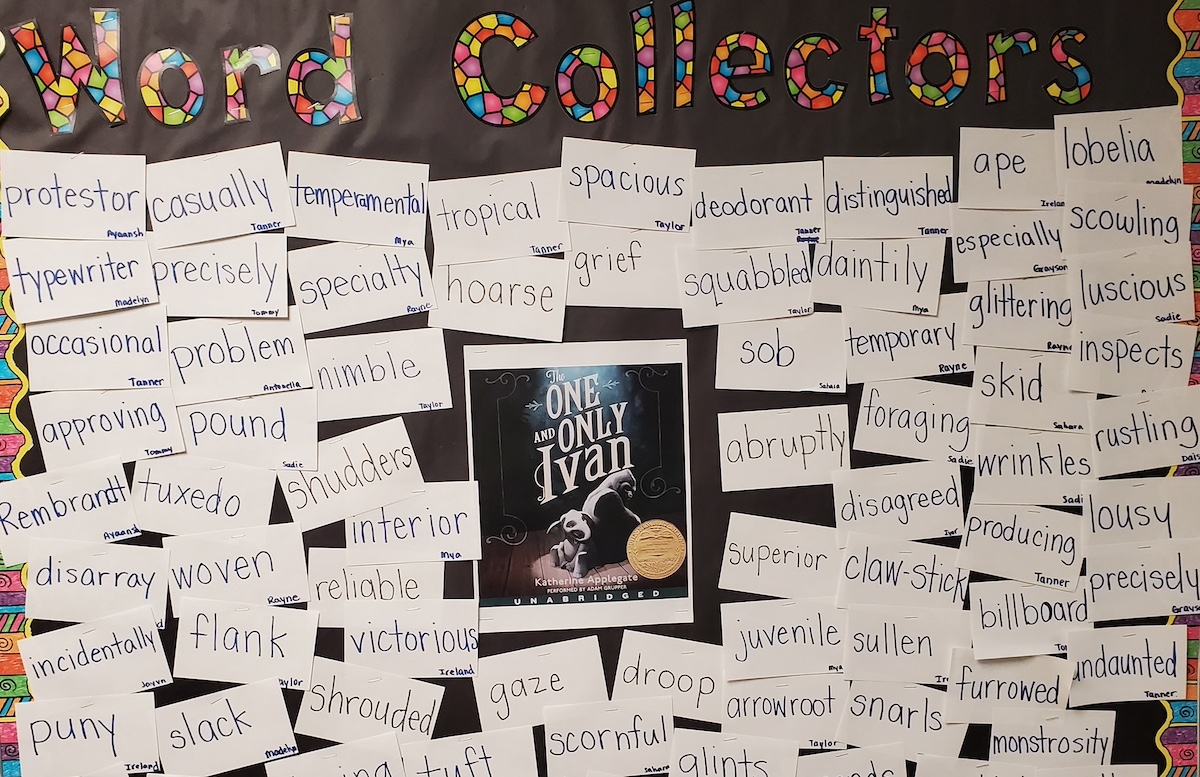 Word Collectors
protestor
Ayaansh
casually
Tanner
temperamental
Mya
tropical
Tanner
spacious
Taylor
deodorant
Tanner
distinguished
Tanner
ape
lobelia
madelyn
typewriter
madelyn
precisely
Tommy
specialty
Rayne
hoarse
grief
squabbled
Taylor
daintily
Mya
especially
Grayson
scowling
occasional
Tanner
problem
Antonella
nimble
Taylor
sob
Sahara
temporary
Rayne
glittering
Rayne
luscious
Sadie
inspects
approving
Tommy
pound
Sadie
shudders
The
ONE
AND ONLY
Ivan
Katherine Applegate
PERFORMED BY ADAM GRUPPER
UNABRIDGED
abruptly
foraging
Sadie
skid
Sahara
rustling
Rembrandt
Ayaansh
tuxedo
interior
Mya
disagreed
wrinkles
Sadi
lousy
disarray
woven
Rayne
reliable
superior
claw-stick
producing
Tanner
precisely
Grays
incidentally
flank
victorious
Ireland
juvenile
Mya
sullen
billboard
undaunted
Tanner
puny
Ireland
slack
madelyn
shrouded
gaze
droop
arrowroot
Taylor
snarls
furrowed
monstrosity
tuft
scornful
Sahara
glints